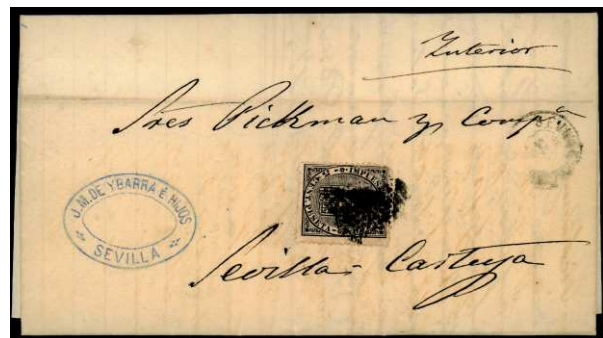 Interior
Sres Pickman y Compª
SEVILLA
IMPUES
J. M. DE YBARRA É HIJOS
SEVILLA
Sevilla = Cartuja